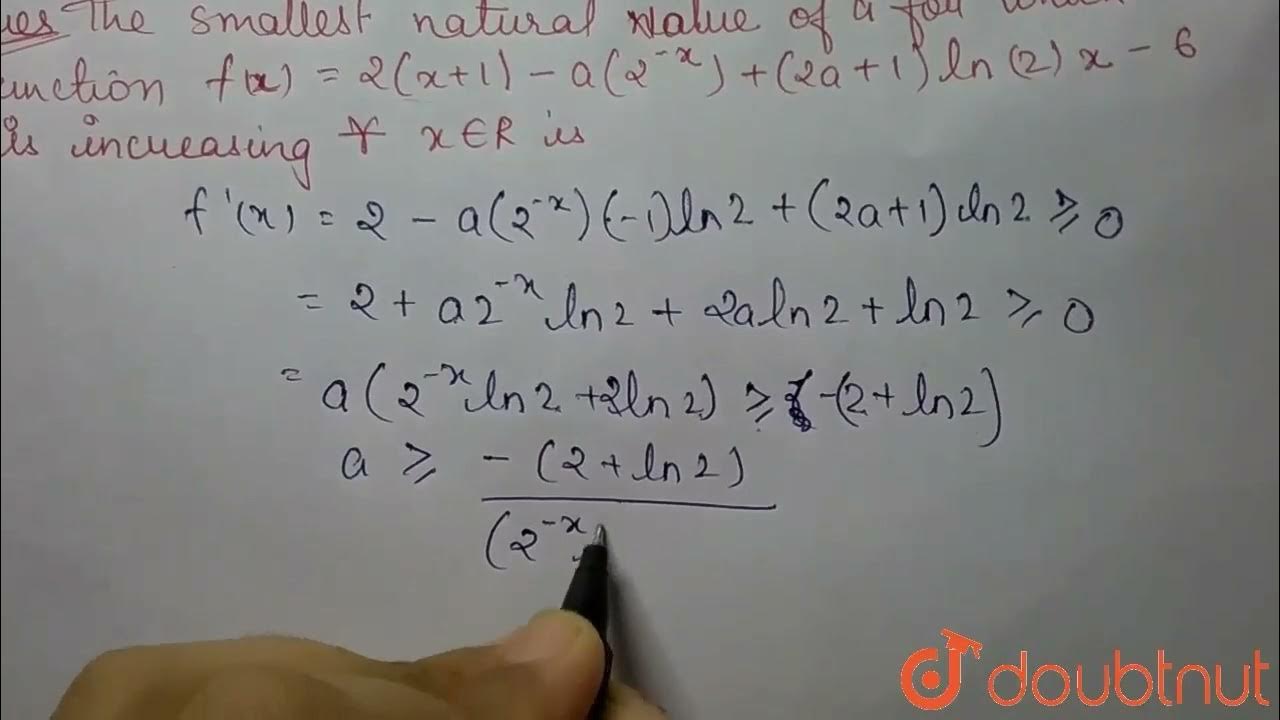 The smallest natural value of a for
function f(x) = 2(x+1) - a(2⁻ˣ) + (2a+1) ln(2) x - 6
is increasing ∀ x∈R is
f'(x) = 2 - a(2⁻ˣ)(-1)ln2 + (2a+1)ln2 ≥ 0
= 2 + a2⁻ˣ ln2 + 2a ln2 + ln2 ≥ 0
= a(2⁻ˣ ln2 + 2ln2) ≥ -(2 + ln2)
a ≥ -(2 + ln2)
(2⁻ˣ
doubtnut